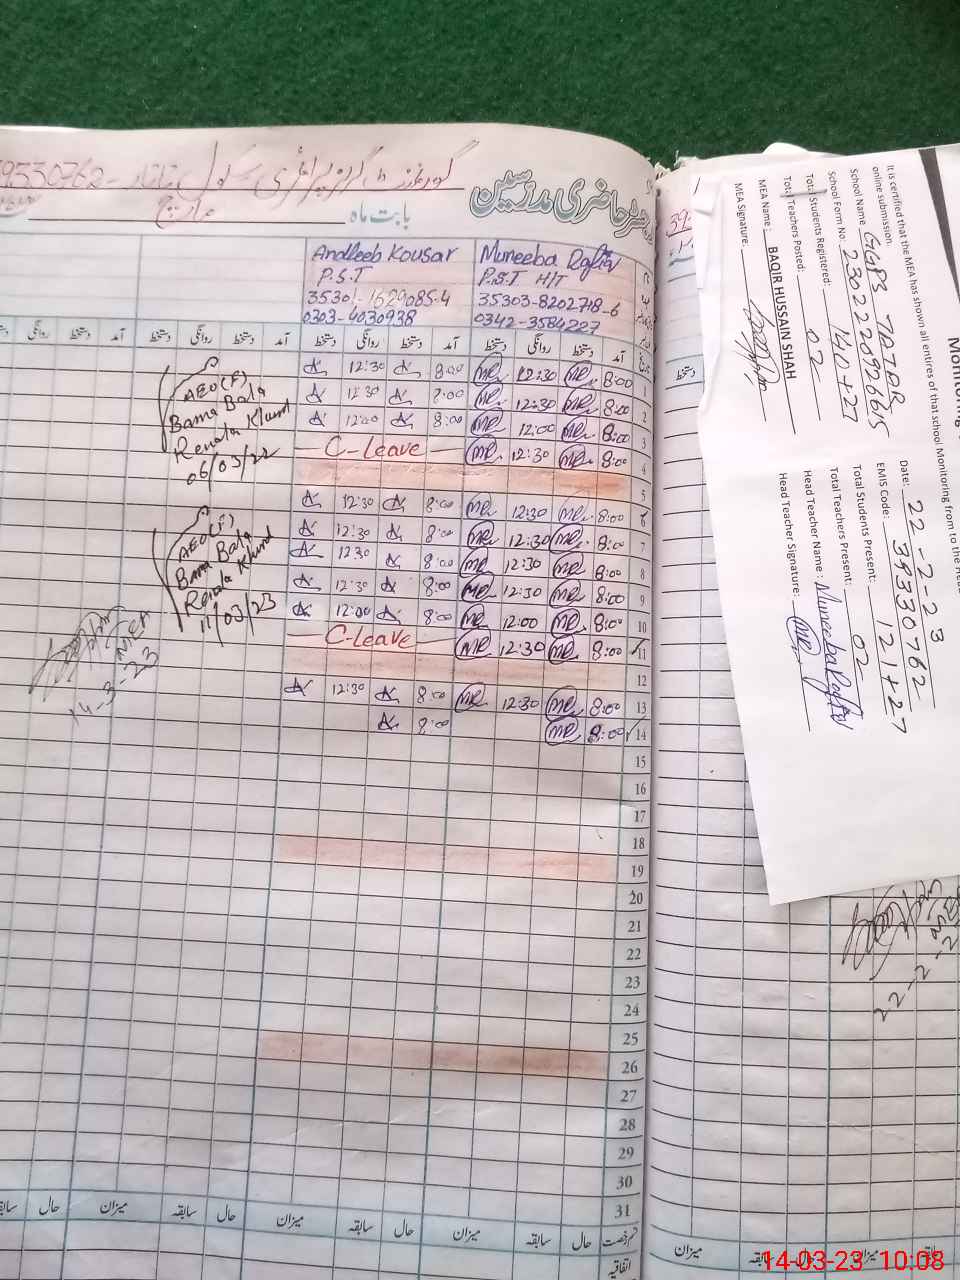 گورنمنٹ گرلز پرائمری سکول
39330762
رجسٹر حاضری مدرسین
بابت ماہ مارچ
Andleeb Kousar
P.S.T
35301-1629085-4
0303-4030938
Muneeba Rafiq
P.S.T H/T
35303-8202718-6
0342-3584227
دستخط روانگی دستخط آمد دستخط روانگی دستخط آمد دستخط روانگی دستخط آمد
12:30 8:00 me 12:30 me 8:00
12:30 8:00 me 12:30 me 8:00 2
12:00 8:00 me 12:00 me 8:00 3
C-Leave me 12:30 me 8:00 4
5
12:30 8:00 me 12:30 me 8:00 6
12:30 8:00 me 12:30 me 8:00 7
12:30 8:00 me 12:30 me 8:00 8
12:30 8:00 me 12:30 me 8:00 9
12:00 8:00 me 12:00 me 8:00 10
C-Leave me 12:30 me 8:00 11
12
12:30 8:00 me 12:30 me 8:00 13
8:00 me 8:00 14
15
16
17
18
19
20
21
22
23
24
25
26
27
28
29
30
31
AEO(F)
Bama Bala
Renala Khurd
06/03/23
AEO(F)
Bama Bala
Renala Khurd
11/03/23
MEA
14-3-23
میزان حال سابقہ میزان حال سابقہ میزان حال سابقہ
اتفاقیہ
It is certified that the MEA has shown all entires of that school Monitoring from to the Head
online submission.
Date: 22-2-23
School Name GGPS TATAR
EMIS Code: 39330762
School Form No: 2302220892665
Total Students Present: 121+27
Total Students Registered: 140+27
Total Teachers Present: 02
Total Teachers Posted: 02
Head Teacher Name: Muneeba Rafiq
MEA Name: BAQIR HUSSAIN SHAH
Head Teacher Signature: me
MEA Signature:
دستخط
MEA
میزان سابقہ حال میزان
14-03-23 10:08